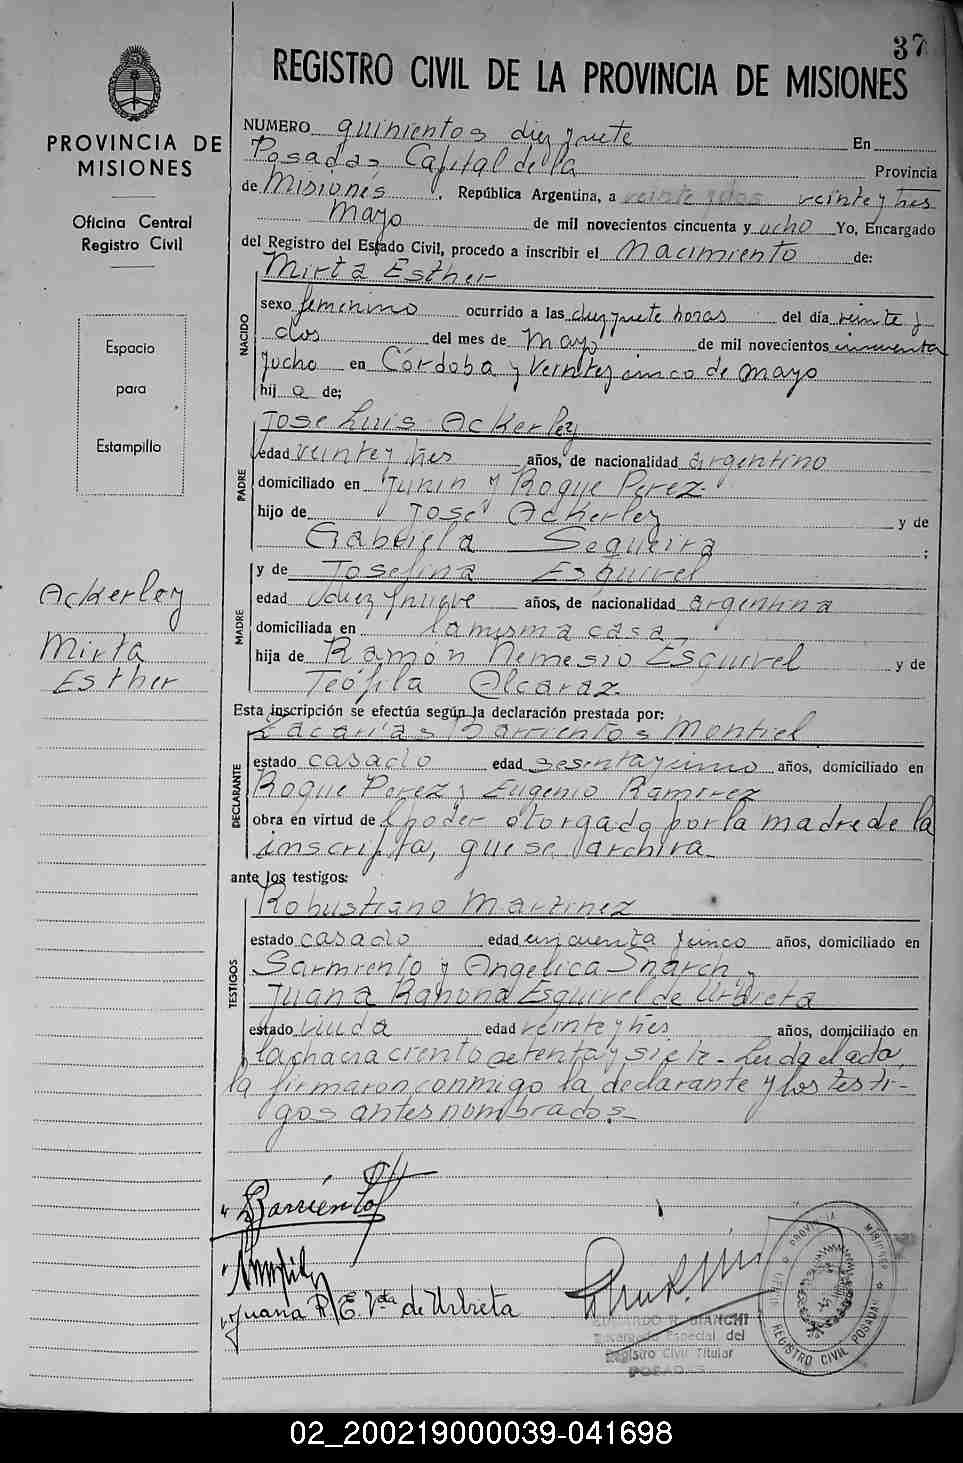 37
REGISTRO CIVIL DE LA PROVINCIA DE MISIONES
PROVINCIA DE
MISIONES
Oficina Central
Registro Civil
Espacio
para
Estampilla
Ackerley
Mirta
Esther
NUMERO quinientos diez y siete En
Posadas, Capital de la Provincia
de Misiones, República Argentina, a veinte y dos veinte y tres
Mayo de mil novecientos cincuenta y ocho Yo, Encargado
del Registro del Estado Civil, procedo a inscribir el Nacimiento de:
NACIDO
Mirta Esther
sexo femenino ocurrido a las diez y siete horas del día veinte y
dos del mes de Mayo de mil novecientos cincuenta
y ocho en Córdoba y Veinte y cinco de Mayo
hij a de;
PADRE
Jose Luis Ackerley
edad veinte y tres años, de nacionalidad argentino
domiciliado en Junin y Roque Perez
hijo de José Ackerley y de
Gabriela Sequeira ;
MADRE
y de Josefina Esquivel
edad diez y nueve años, de nacionalidad argentina
domiciliada en la misma casa
hija de Ramón Nemesio Esquivel y de
Teófila Alcaraz
Esta inscripción se efectúa según la declaración prestada por:
DECLARANTE
Zacarías Barrientos Montiel
estado casado edad sesenta y uno años, domiciliado en
Roque Perez y Eugenio Ramirez
obra en virtud de poder otorgado por la madre de la
inscripta, que se archiva
ante los testigos:
TESTIGOS
Robustiano Martinez
estado casado edad cincuenta y cinco años, domiciliado en
Sarmiento y Angelica Snarch y
Juana Ramona Esquivel de Urbieta
estado viuda edad veinte y tres años, domiciliado en
la chacra ciento setenta y siete - Leida el acta,
la firmaron conmigo la declarante y los testi-
gos antes nombrados
Barrientos
Juana R. E. Vda de Urbieta
EDUARDO R. BIANCHI
Encargado Especial del
Registro Civil Titular
POSADAS
PROVINCIA MISIONES
REGISTRO CIVIL POSADAS
02_200219000039-041698